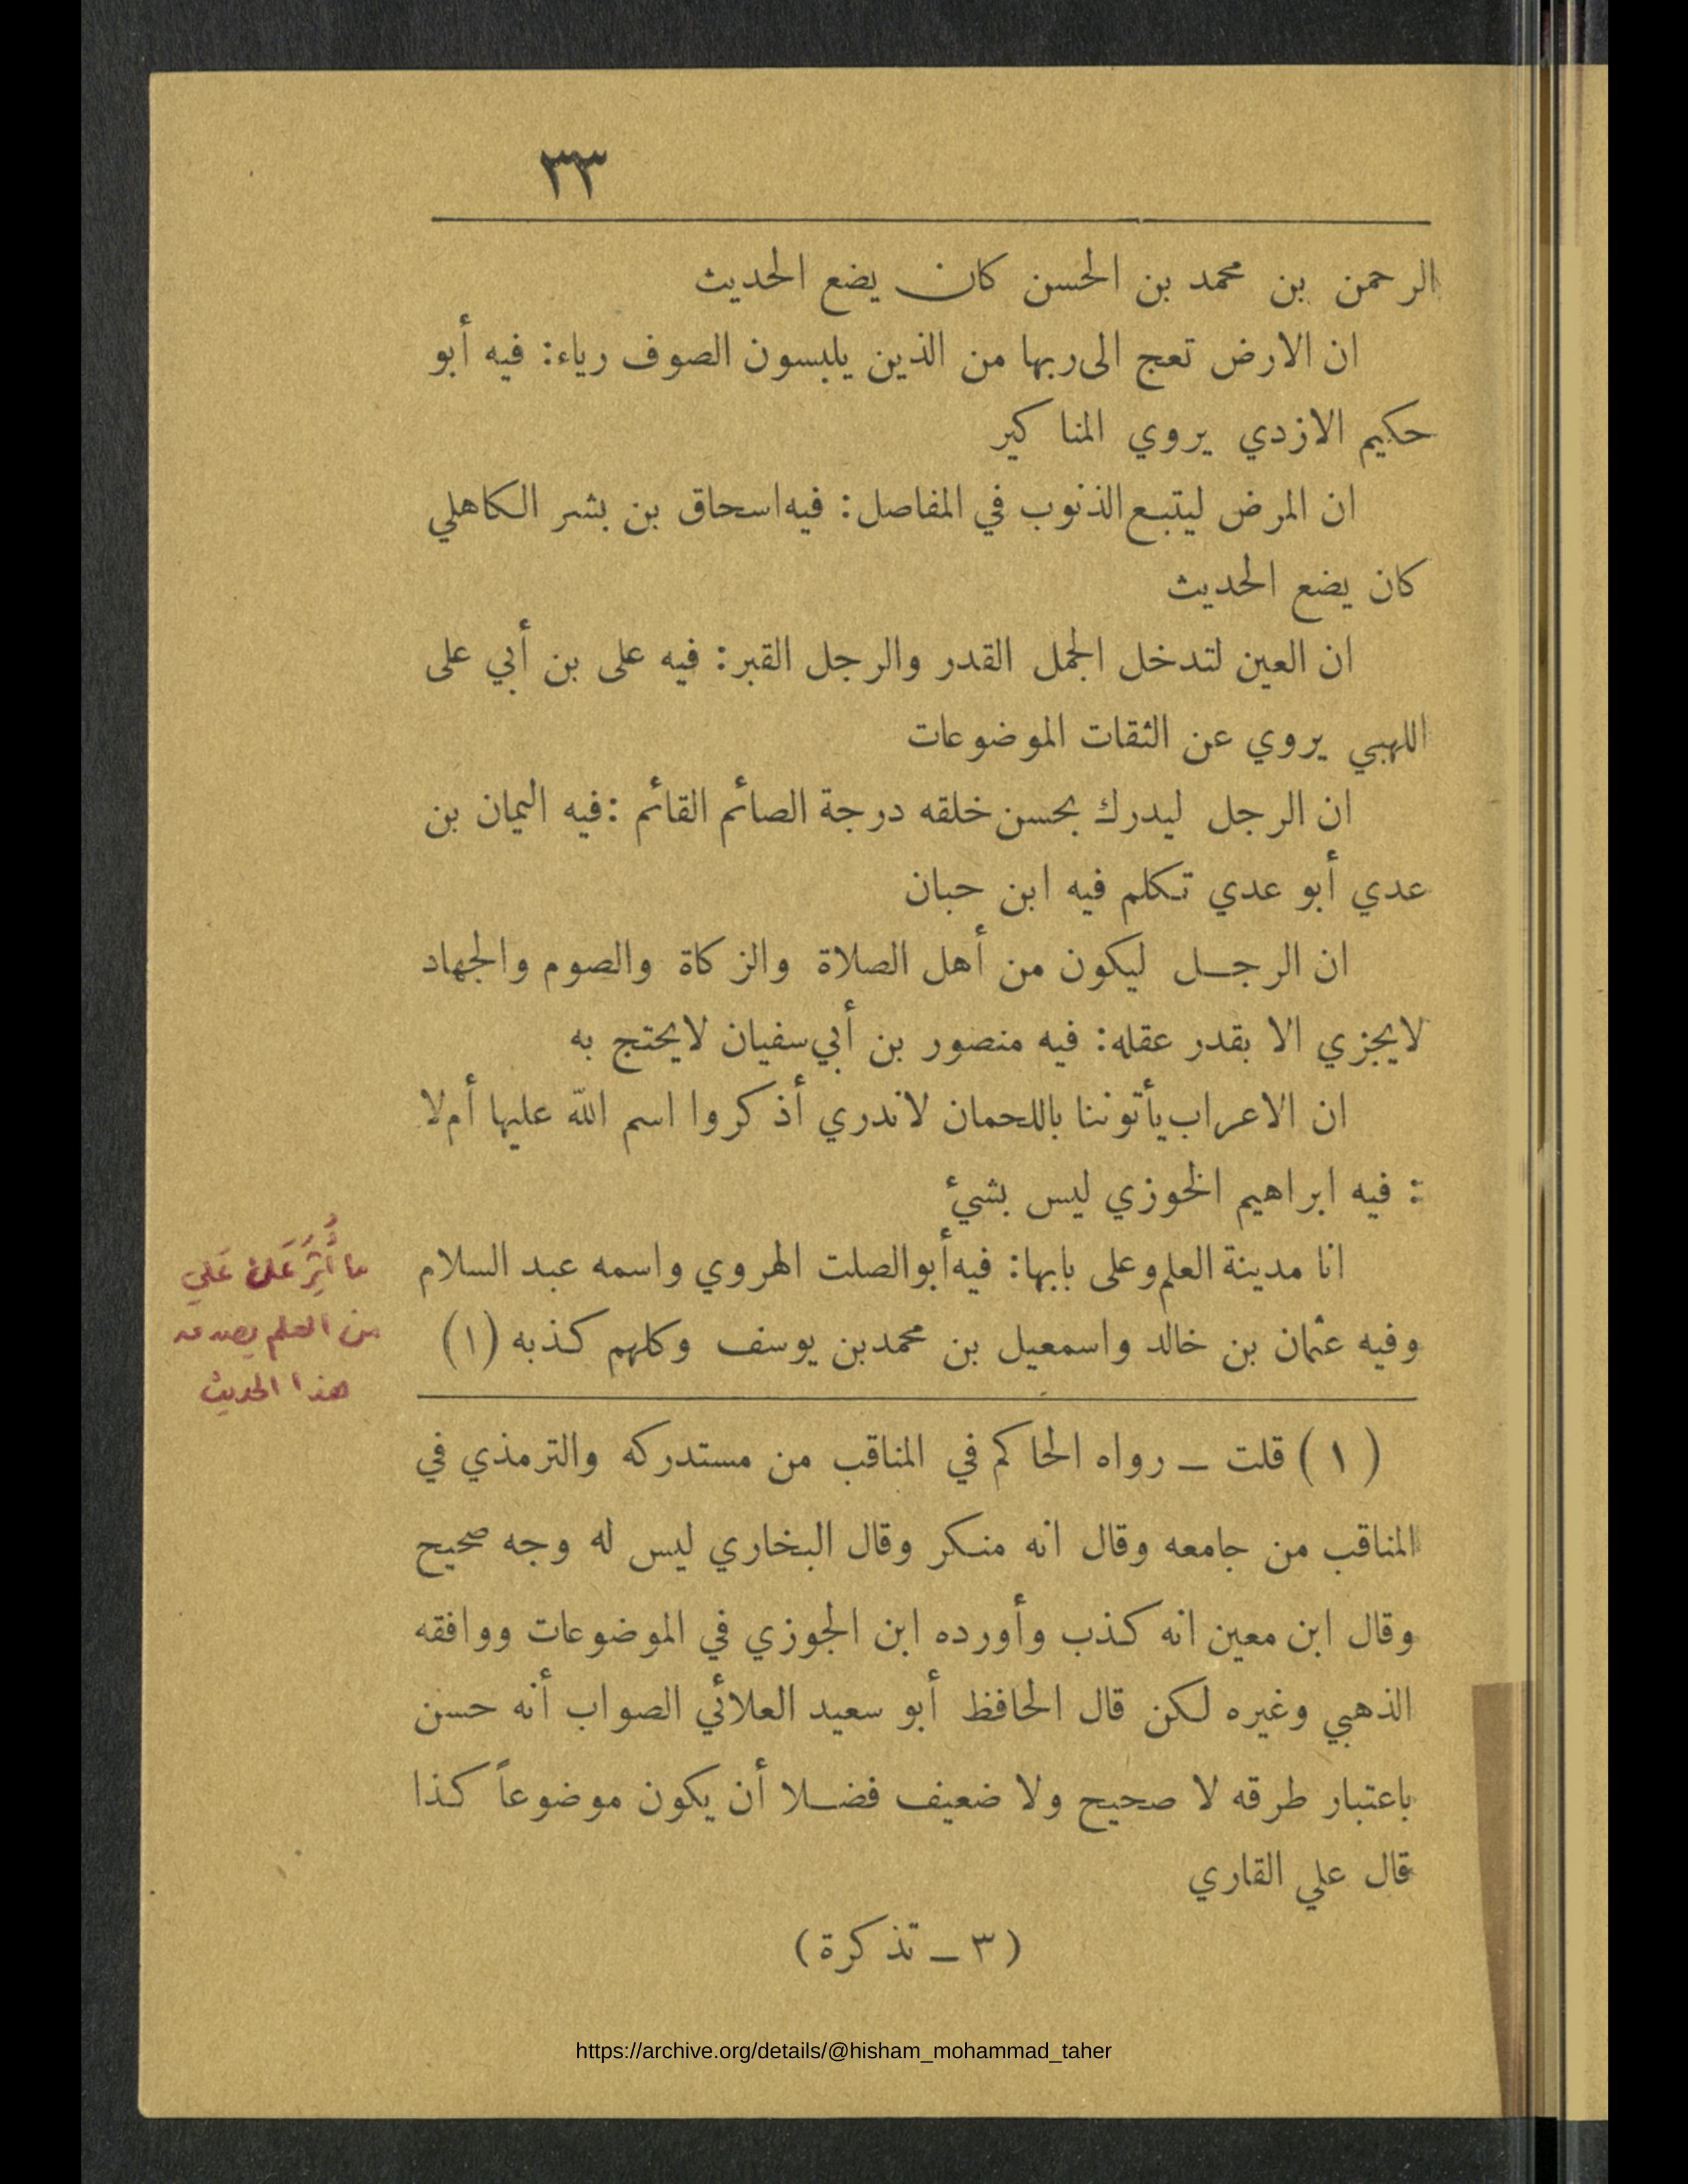 ٣٣
الرحمن بن محمد بن الحسن كان يضع الحديث
ان الارض تعج الى ربها من الذين يلبسون الصوف رياء: فيه أبو
حكيم الازدي يروي المناكير
ان المرض ليتبع الذنوب في المفاصل: فيه اسحاق بن بشر الكاهلي
كان يضع الحديث
ان العين لتدخل الجمل القدر والرجل القبر: فيه على بن أبي على
اللهبي يروي عن الثقات الموضوعات
ان الرجل ليدرك بحسن خلقه درجة الصائم القائم: فيه اليمان بن
عدي أبو عدي تكلم فيه ابن حبان
ان الرجل ليكون من أهل الصلاة والزكاة والصوم والجهاد
لايجزي الا بقدر عقله: فيه منصور بن أبي سفيان لايحتج به
ان الاعراب يأتوننا باللحمان لاندري أذكروا اسم الله عليها أم لا
: فيه ابراهيم الخوزي ليس بشئ
انا مدينة العلم وعلى بابها: فيه أبو الصلت الهروي واسمه عبد السلام
وفيه عثمان بن خالد واسمعيل بن محمد بن يوسف وكلهم كذبه (١)
ما أُثِرَ عَلَى عَلي
من العلم
هذا الحديث
(١) قلت ـ رواه الحاكم في المناقب من مستدركه والترمذي في
المناقب من جامعه وقال انه منكر وقال البخاري ليس له وجه صحيح
وقال ابن معين انه كذب وأورده ابن الجوزي في الموضوعات ووافقه
الذهبي وغيره لكن قال الحافظ أبو سعيد العلائي الصواب أنه حسن
باعتبار طرقه لا صحيح ولا ضعيف فضلا أن يكون موضوعاً كذا
قال علي القاري
(٣ ـ تذكرة)
https://archive.org/details/@hisham_mohammad_taher